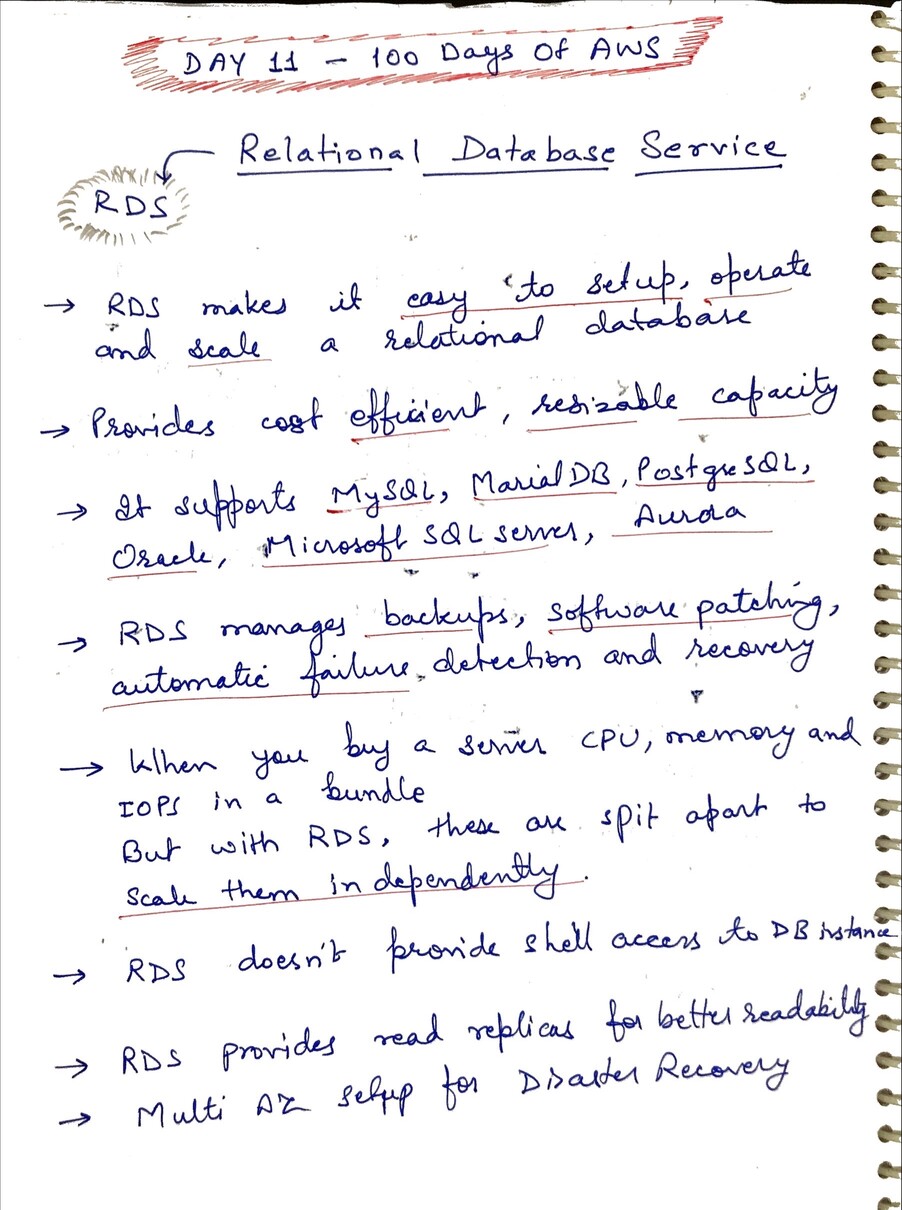 DAY 11 - 100 Days Of AWS
Relational Database Service
RDS
→ RDS makes it easy to setup, operate
and scale a relational database
→ Provides cost efficient, resizable capacity
→ It supports MySQL, MariaDB, PostgreSQL,
Oracle, Microsoft SQL server, Aurora
→ RDS manages backups, software patching,
automatic failure, detection and recovery
→ When you buy a server CPU, memory and
IOPS in a bundle
But with RDS, these are spit apart to
Scale them independently.
→ RDS doesn't provide shell access to DB instance
→ RDS provides read replicas for better readability
→ Multi AZ setup for Disaster Recovery